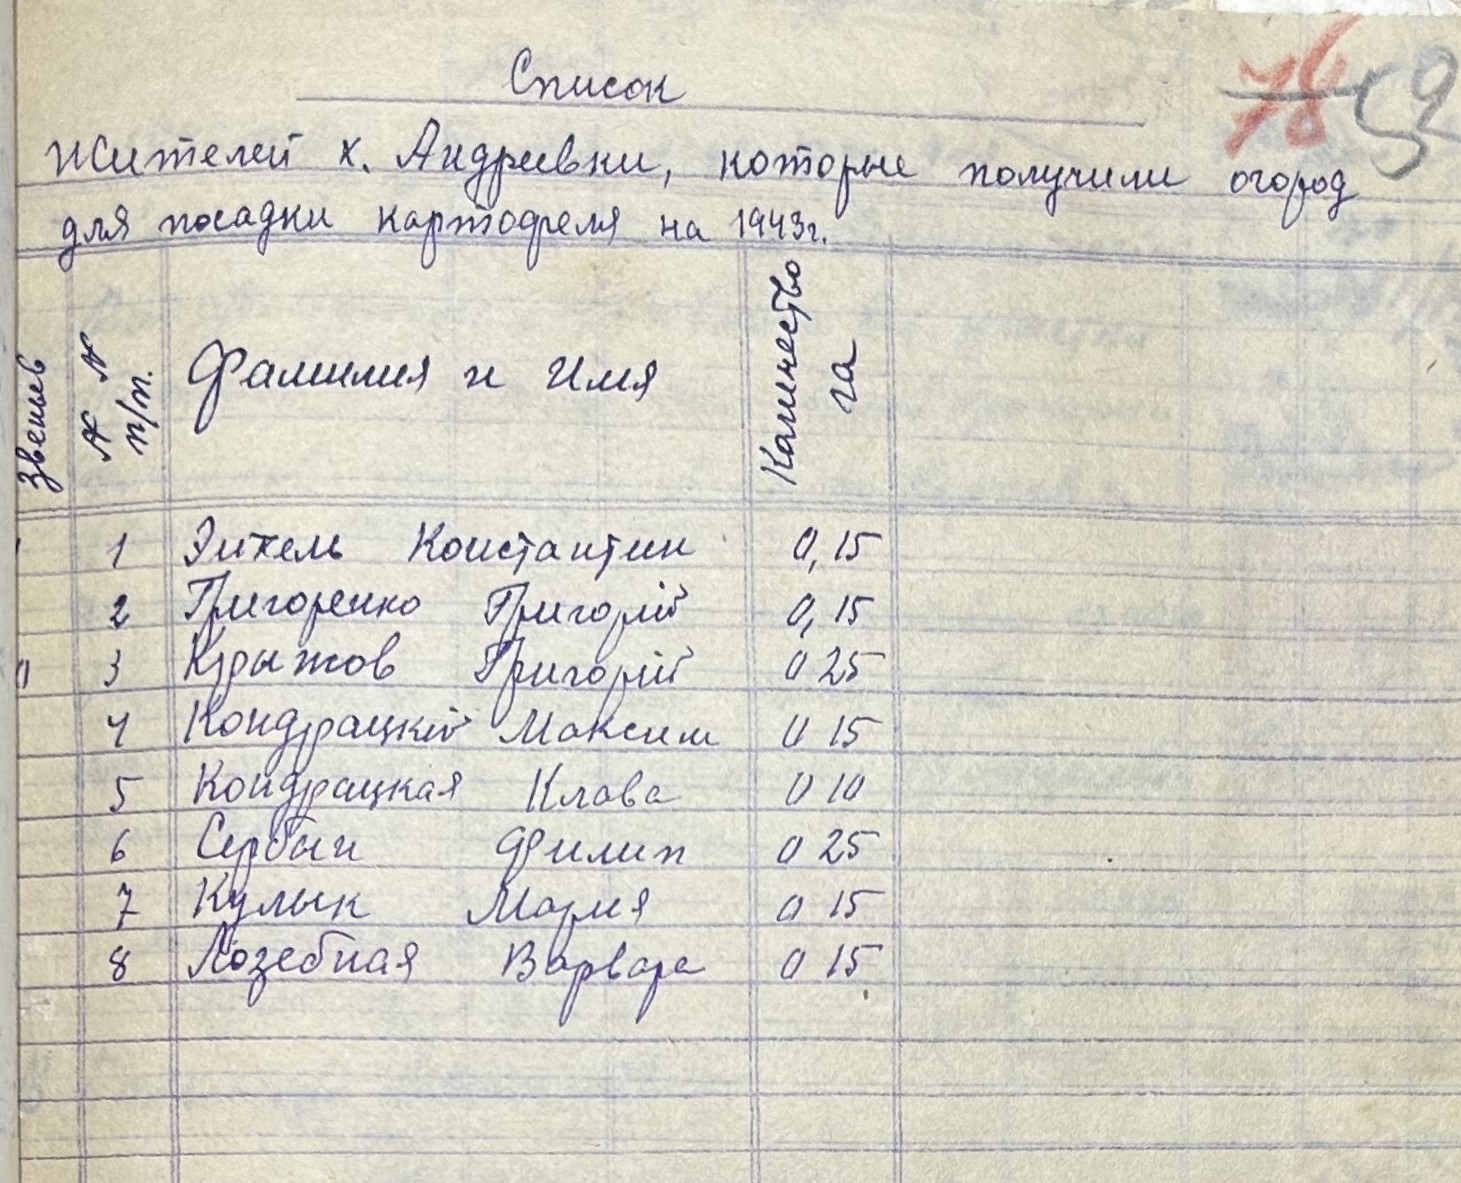 78 59
Список
Жителей х. Андреевки, которые получили огород
для посадки картофеля на 1943г.
Звеньев
№ № п/п.
Фамилия и Имя
Количество га
1 Энхель Константин 0,15
2 Григоренко Григорій 0,15
3 Крыжов Григорій 0 25
4 Кондрацкій Максим 0 15
5 Кондрацкая Клава 0 10
6 Сербин Филип 0 25
7 Кулык Мария 0 15
8 Лозебная Варвара 0 15